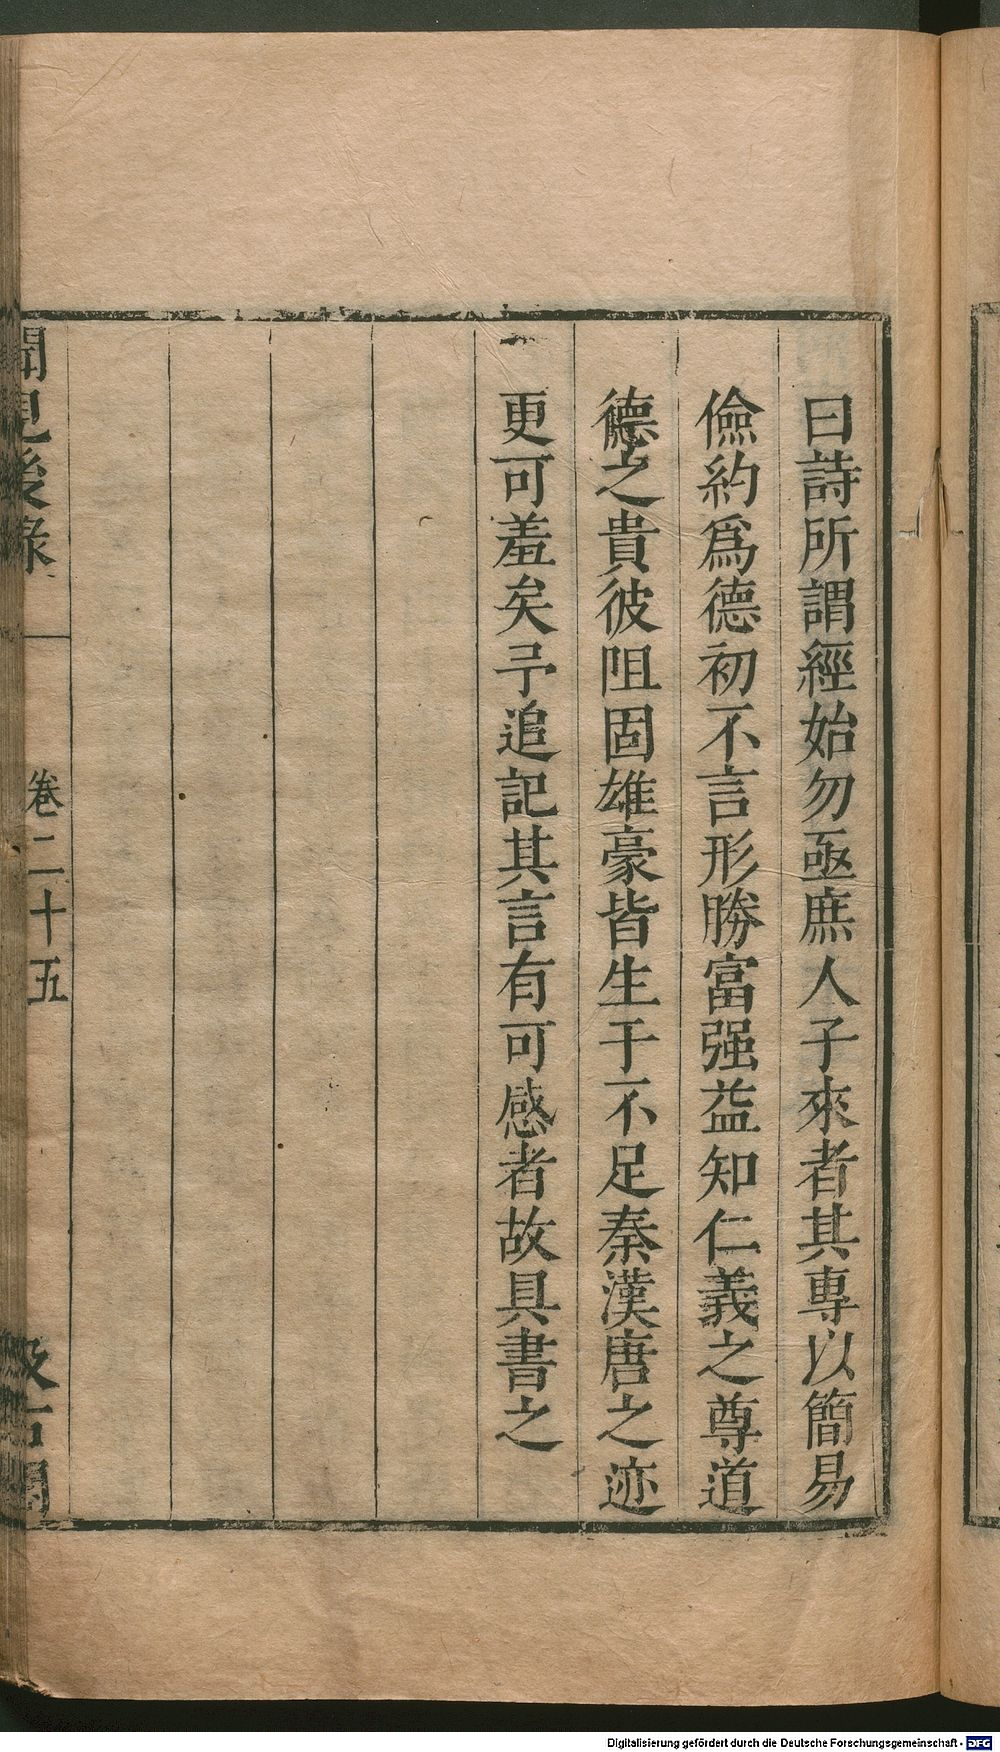 曰詩所謂經始勿亟庶人子來者其專以簡易
儉約爲德初不言形勝富强益知仁義之尊道
德之貴彼阻固雄豪皆生于不足秦漢唐之迹
更可羞矣予追記其言有可感者故具書之
聞見後錄
卷二十五
汲古閣
Digitalisierung gefördert durch die Deutsche Forschungsgemeinschaft - DFG